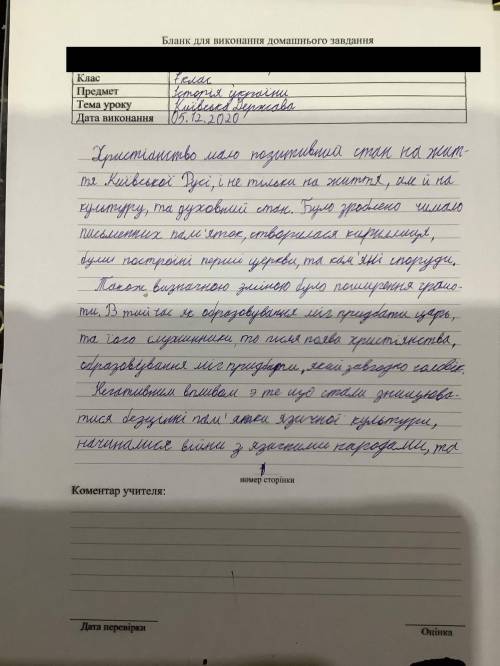 Бланк для виконання домашнього завдання
Клас 7 клас
Предмет Історія України
Тема уроку Київська Держава
Дата виконання 05.12.2020
Християнство мало позитивний стан на жит-
тя Київської Русі, і не тільки на життя, ай й на
культуру, та духовний стан. Було зроблено чимало
письменних пам'яток, створилася кирилиця,
були построїні перші церкви, та кам'яні споруди.
Також, визначною зміною було поширення грамо-
ти. В той час як образовування міг придбати царь,
та його слушиники то після появи християнства,
образовування міг придбати, який завгодно чоловік.
Негативним впливом э те що стали знищюва-
тися безцінні пам'ятки язичної культури,
начиналися війни з язичними народами, та
1
номер сторінки
Коментар учителя:
Дата перевірки
Оцінка